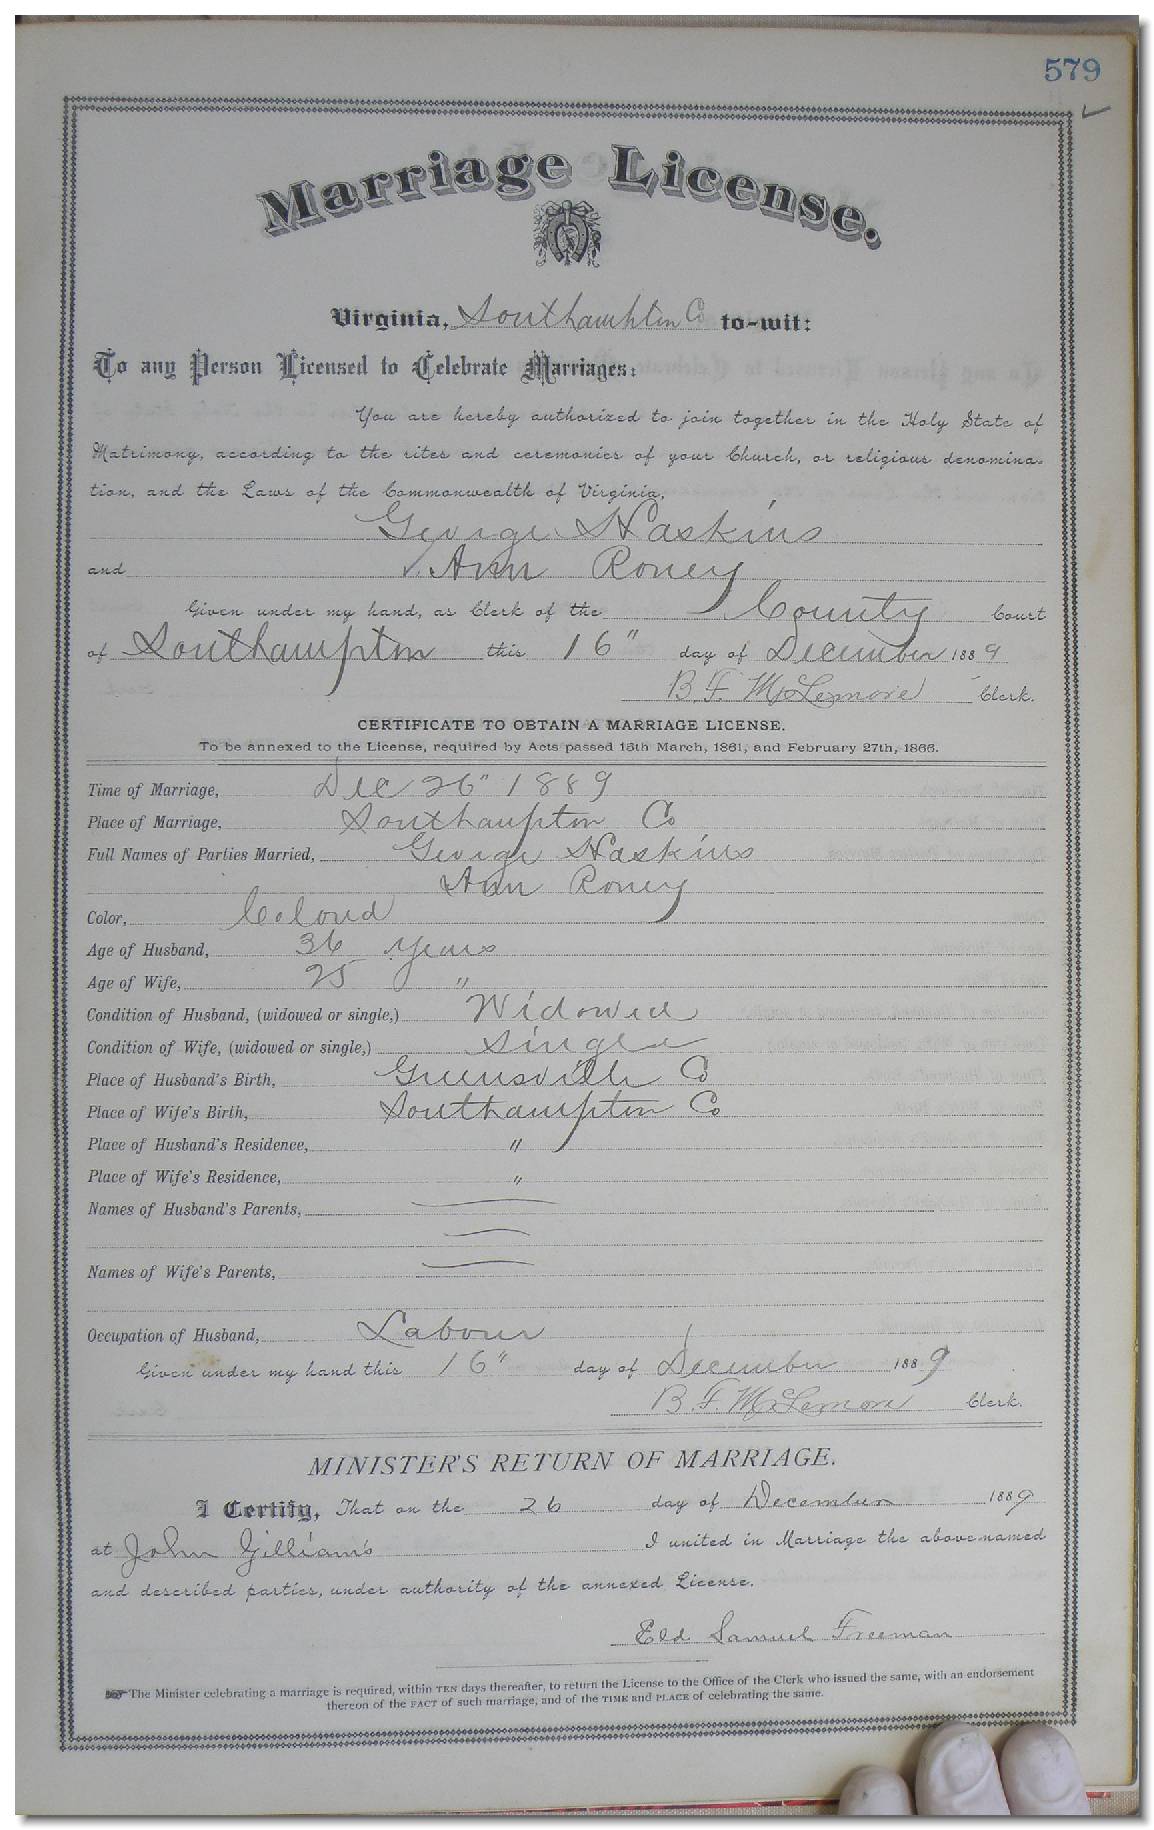 579
Marriage License.
Virginia, Southampton Co to-wit:
To any Person Licensed to Celebrate Marriages:
You are hereby authorized to join together in the Holy State of
Matrimony, according to the rites and ceremonies of your Church, or religious denomina-
tion, and the Laws of the Commonwealth of Virginia,
George Haskins
and Ann Roney
Given under my hand, as Clerk of the County Court
of Southampton this 16" day of December 1889
B. F. McLemore Clerk.
CERTIFICATE TO OBTAIN A MARRIAGE LICENSE.
To be annexed to the License, required by Acts passed 15th March, 1861, and February 27th, 1866.
Time of Marriage, Dec 26" 1889
Place of Marriage, Southampton Co
Full Names of Parties Married, George Haskins
Ann Roney
Color, Colord
Age of Husband, 36 years
Age of Wife, 25 "
Condition of Husband, (widowed or single,) Widowed
Condition of Wife, (widowed or single,) Single
Place of Husband's Birth, Greensville Co
Place of Wife's Birth, Southampton Co
Place of Husband's Residence, "
Place of Wife's Residence, "
Names of Husband's Parents,
Names of Wife's Parents,
Occupation of Husband, Labour
Given under my hand this 16" day of December 1889
B. F. McLemore Clerk.
MINISTER'S RETURN OF MARRIAGE.
I Certify, That on the 26 day of December 1889
at John Gilliam's I united in Marriage the above-named
and described parties, under authority of the annexed License.
Eld Samuel Freeman
The Minister celebrating a marriage is required, within TEN days thereafter, to return the License to the Office of the Clerk who issued the same, with an endorsement
thereon of the FACT of such marriage, and of the TIME and PLACE of celebrating the same.